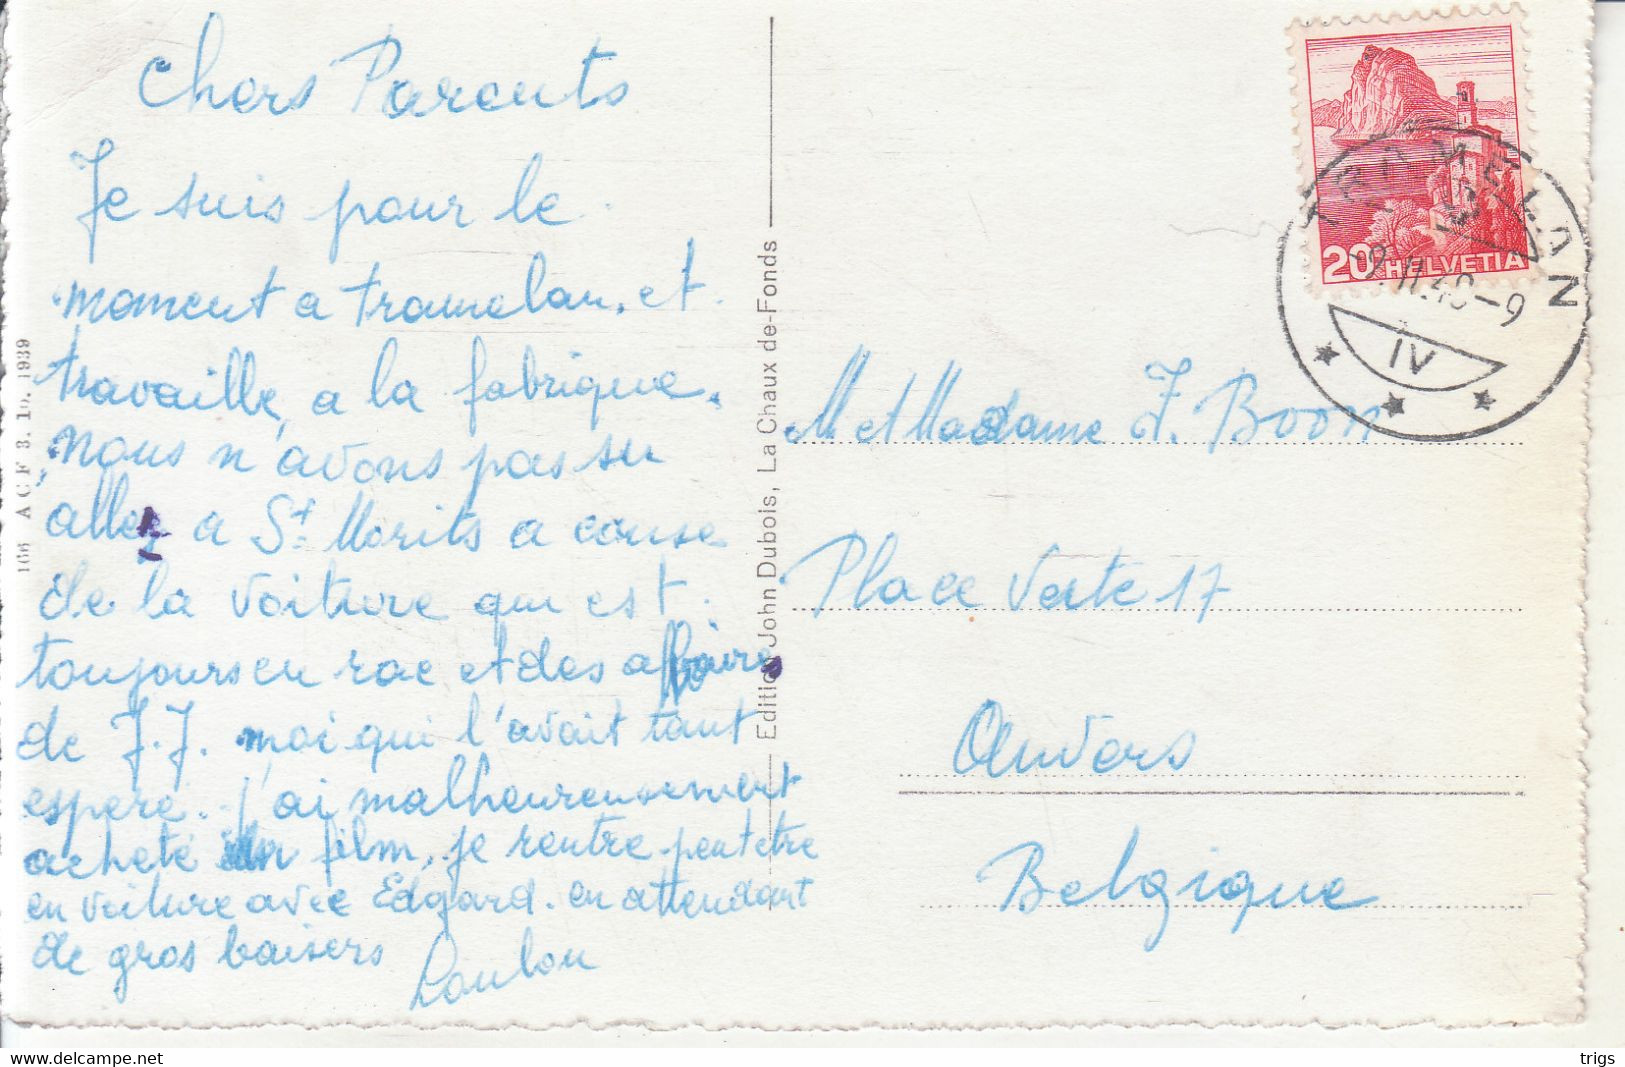 Chers Parents
Je suis pour le
moment a tramelan. et
travaille, a la fabrique.
nous n'avons pas su
aller a St. Morits a cause
de la voiture qui est
toujours en rac et des affaires
de J.J. moi qui l'avait tant
espere. j'ai malheureusement
acheté un film, je rentre peut etre
en voiture avec Edgard. en attendant
de gros baisers
Loulou
166 A C F 3. 10. 1939
Edition John Dubois, La Chaux de-Fonds
20 HELVETIA
TRAMELAN
9-
IV
M et Madame J. Boon
Place Verte 17
Anvers
Belgique
www.delcampe.net
trigs